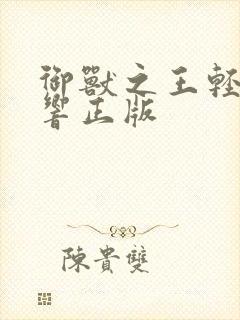 御獸之王輕
響正版
陳貴雙